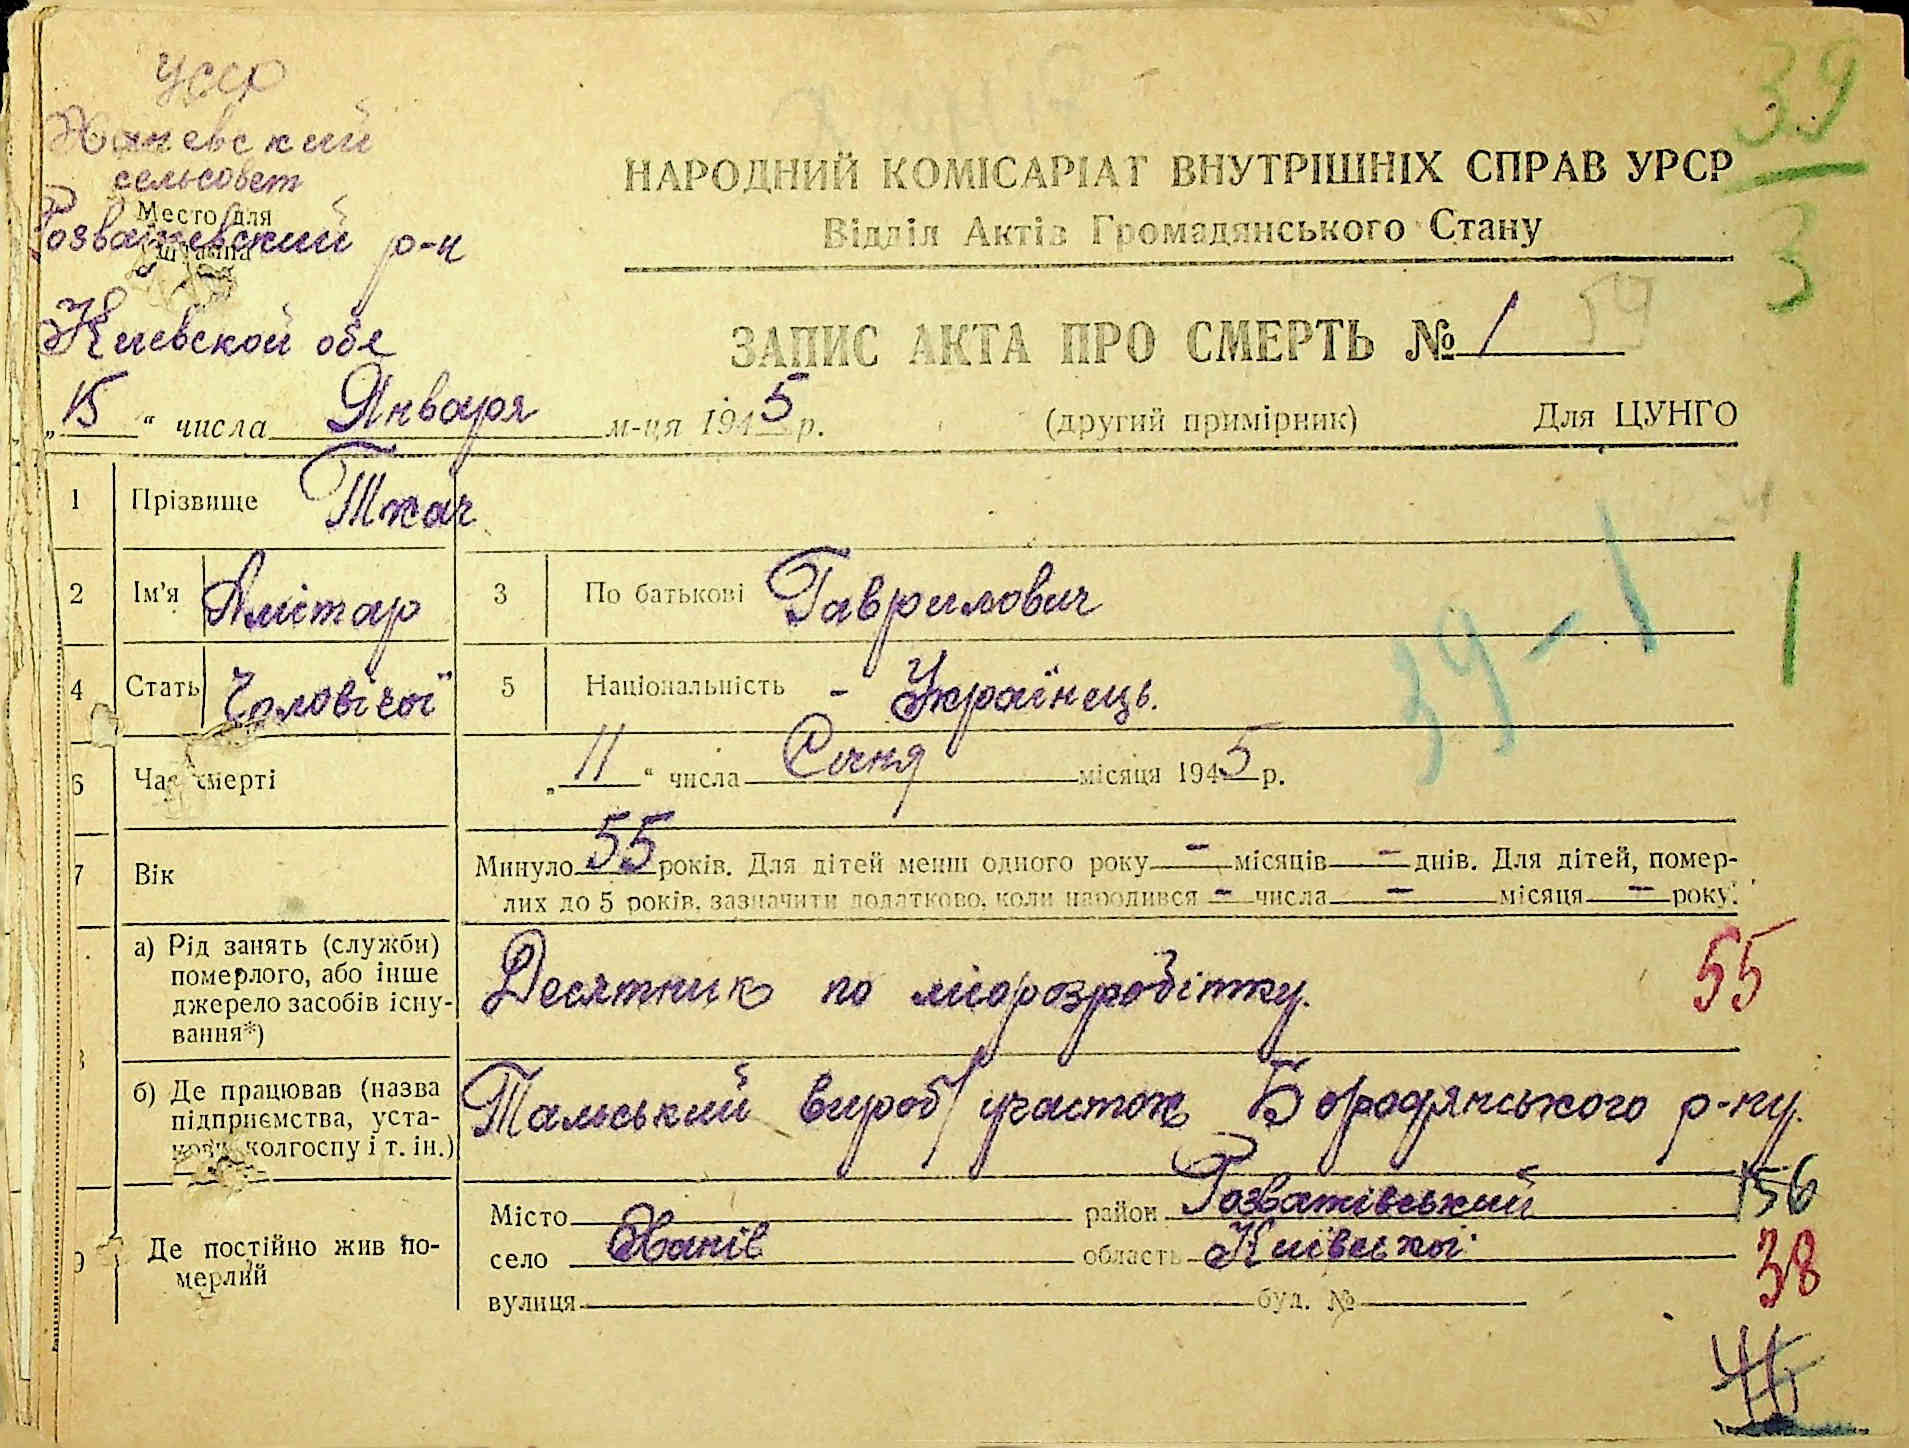 УССР
Ханевский
сельсовет
Место для
Розважевский р-н
штампа
Киевской обл
39
3
НАРОДНИЙ КОМІСАРІАТ ВНУТРІШНІХ СПРАВ УРСР
Відділ Актів Громадянського Стану
ЗАПИС АКТА ПРО СМЕРТЬ № 1 59
„15“ числа Января м-ця 1945 р. (другий примірник) Для ЦУНГО
1 Прізвище Ткач
2 Ім'я Амітар 3 По батькові Гаврилович
39-1
4 Стать Чоловічої 5 Національність - Українець.
6 Час смерті „11“ числа Січня місяця 1945 р.
7 Вік Минуло 55 років. Для дітей менш одного року - місяців - днів. Для дітей, помер-
лих до 5 років, зазначити додатково, коли народився - числа - місяця - року.
а) Рід занять (служби)
померлого, або інше
джерело засобів існу-
вання*)
Десятник по лісорозробітку.
55
б) Де працював (назва
підприємства, уста-
нови, колгоспу і т. ін.)
Тальський вироб/участок Бородянського р-ну.
9 Де постійно жив по-
мерлий
Місто район Розважівський 156
село Ханів область Київської
38
вулиця буд. №